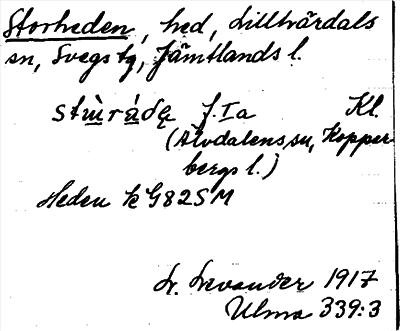 Storheden, hed, Lillhärdals
sn, Svegs tg, Jämtlands l.
f. Ia Kl.
(Älvdalens sn, Kopper
bergs l.)
Heden k G82SM
L. Levander 1917
Ulma 339:3